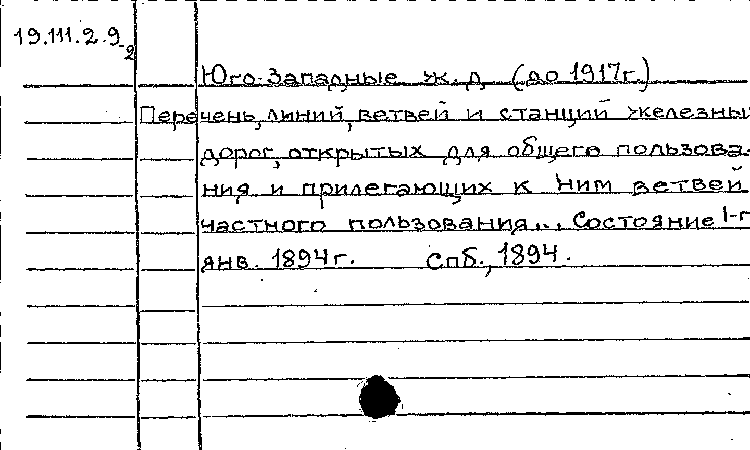 19.111.2.9-2
Юго-Западные ж.д. (до 1917г.)
Перечень, линий, ветвей и станций железны
дорог, открытых для общего пользова-
ния и прилегающих к ним ветвей
частного пользования... Состояние 1-г
янв. 1894г. Спб., 1894.